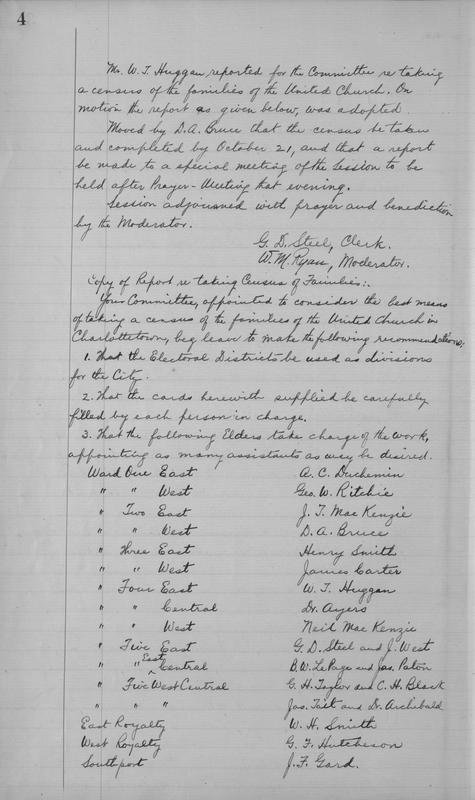 4
Mr. W. T. Huggan reported for the Committee re taking
a census of the families of the United Church. On
motion the report as given below, was adopted.
Moved by D. A. Bruce that the census be taken
and completed by October 21, and that a report
be made to a special meeting of the Session to be
held after Prayer-Meeting that evening.
Session adjourned with prayer and benediction
by the Moderator.
G. D. Steel, Clerk.
W. M. Ryan, Moderator.
Copy of Report re taking Census of Families:-
Your Committee, appointed to consider the best means
of taking a census of the families of the United Church in
Charlottetown, beg leave to make the following recommendations:
1. That the Electoral Districts be used as divisions
for the City.
2. That the cards herewith supplied be carefully
filled by each person in charge.
3. That the following Elders take charge of the work,
appointing as many assistants as may be desired.
Ward One East A. C. Duchemin
" " West Geo. W. Ritchie
" Two East J. T. MacKenzie
" " West D. A. Bruce
" Three East Henry Smith
" " West James Carter
" Four East W. T. Huggan
" " Central Dr. Ayers
" " West Neil MacKenzie
" Five East G. D. Steel and J. West
" " East Central B. W. LePage and Jas. Paton
" Five West Central G. H. Taylor and C. H. Black
" " " Jas. Tait and Dr. Archibald
East Royalty W. H. Smith
West Royalty G. F. Hutcheson
Southport J. F. Gard.